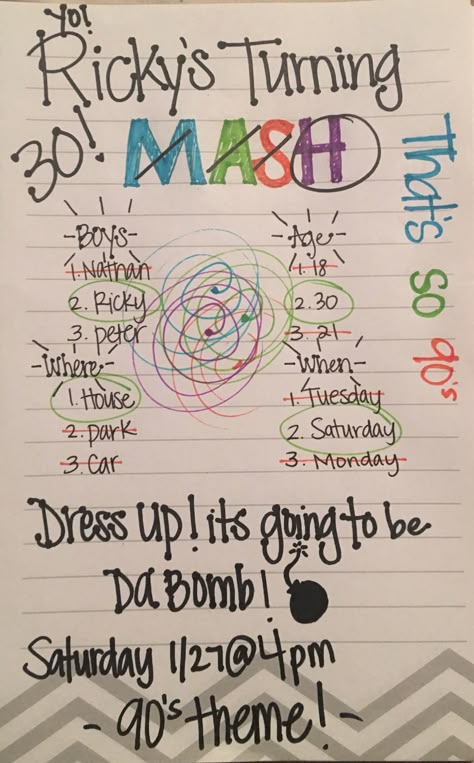 YO!
Ricky's Turning
30! MASH
That's so 90's
-Boys-
1. Nathan
2. Ricky
3. peter
-Age-
1. 18
2. 30
3. 21
-Where-
1. House
2. park
3. Car
-When-
1. Tuesday
2. Saturday
3. Monday
Dress Up! its going to be
Da Bomb!
Saturday 1/27@4pm
- 90's theme! -